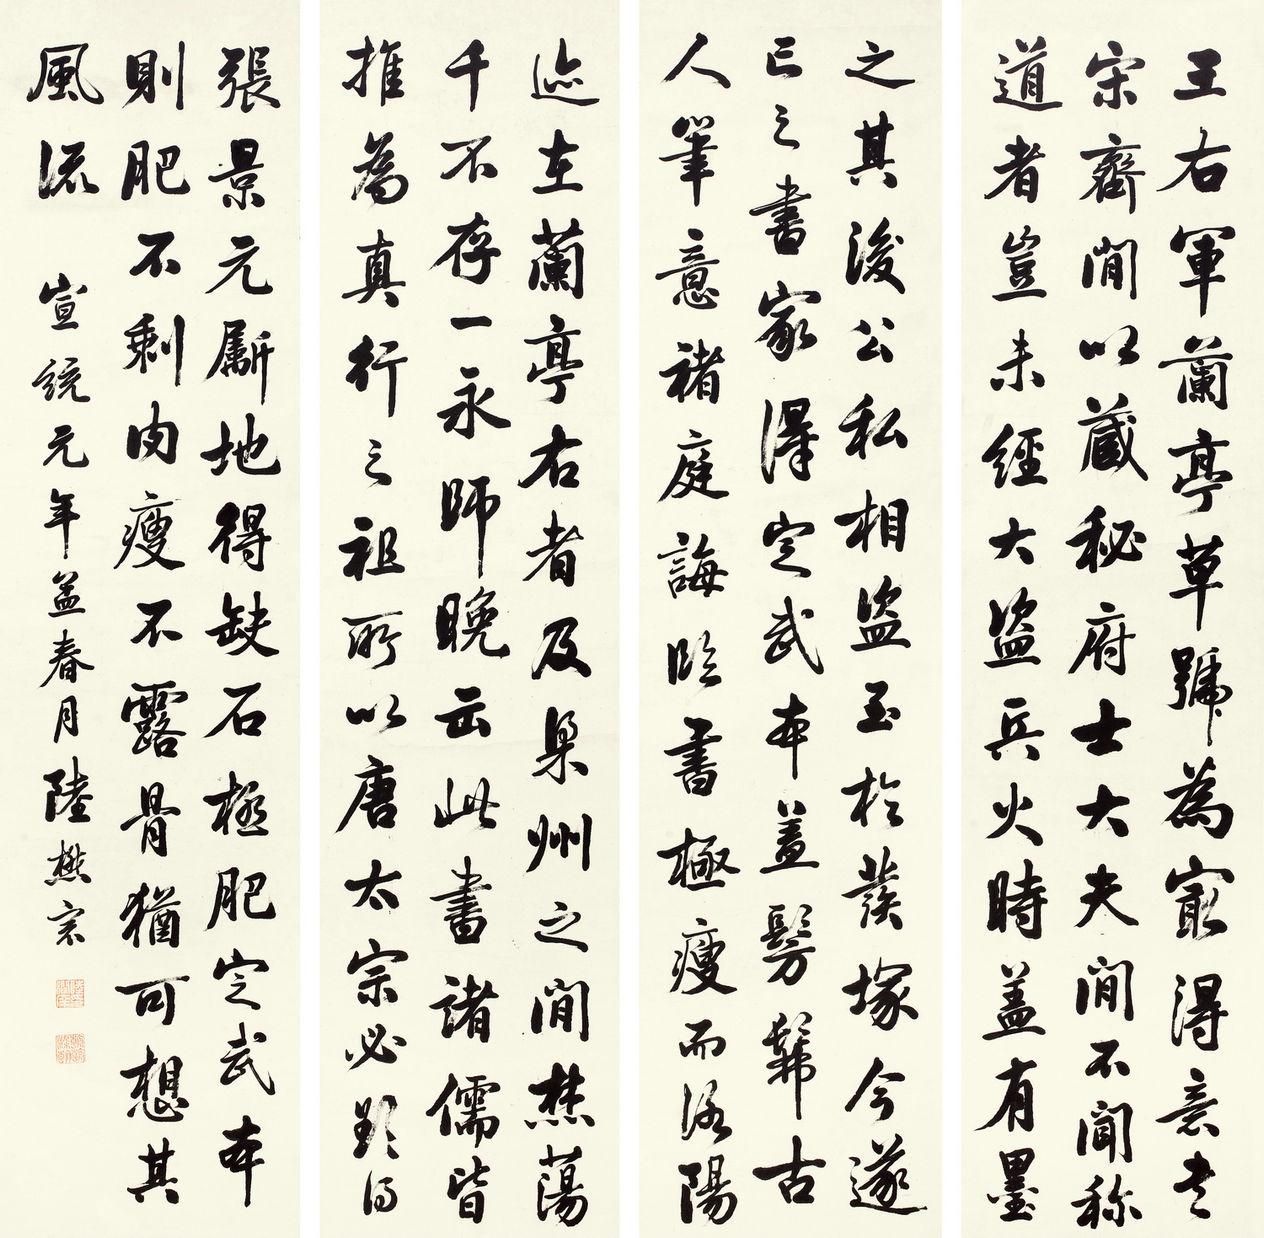 王右軍蘭亭草號為最得意書
宋齊間以藏秘府士大夫間不聞称
道者豈未經大盜兵火時蓋有墨
迹在蘭亭右者及梁州之間焚蕩
千不存一永師晚出此書諸儒皆
推為真行之祖所以唐太宗必欲得
之其後公私相盜至於發塚今遂
亡之書家得定武本蓋髣髴古
人筆意褚庭誨臨書極瘦而洛陽
張景元斸地得缺石極肥定武本
則肥不剩肉瘦不露骨猶可想其
風流
宣統元年孟春月陸懋宗